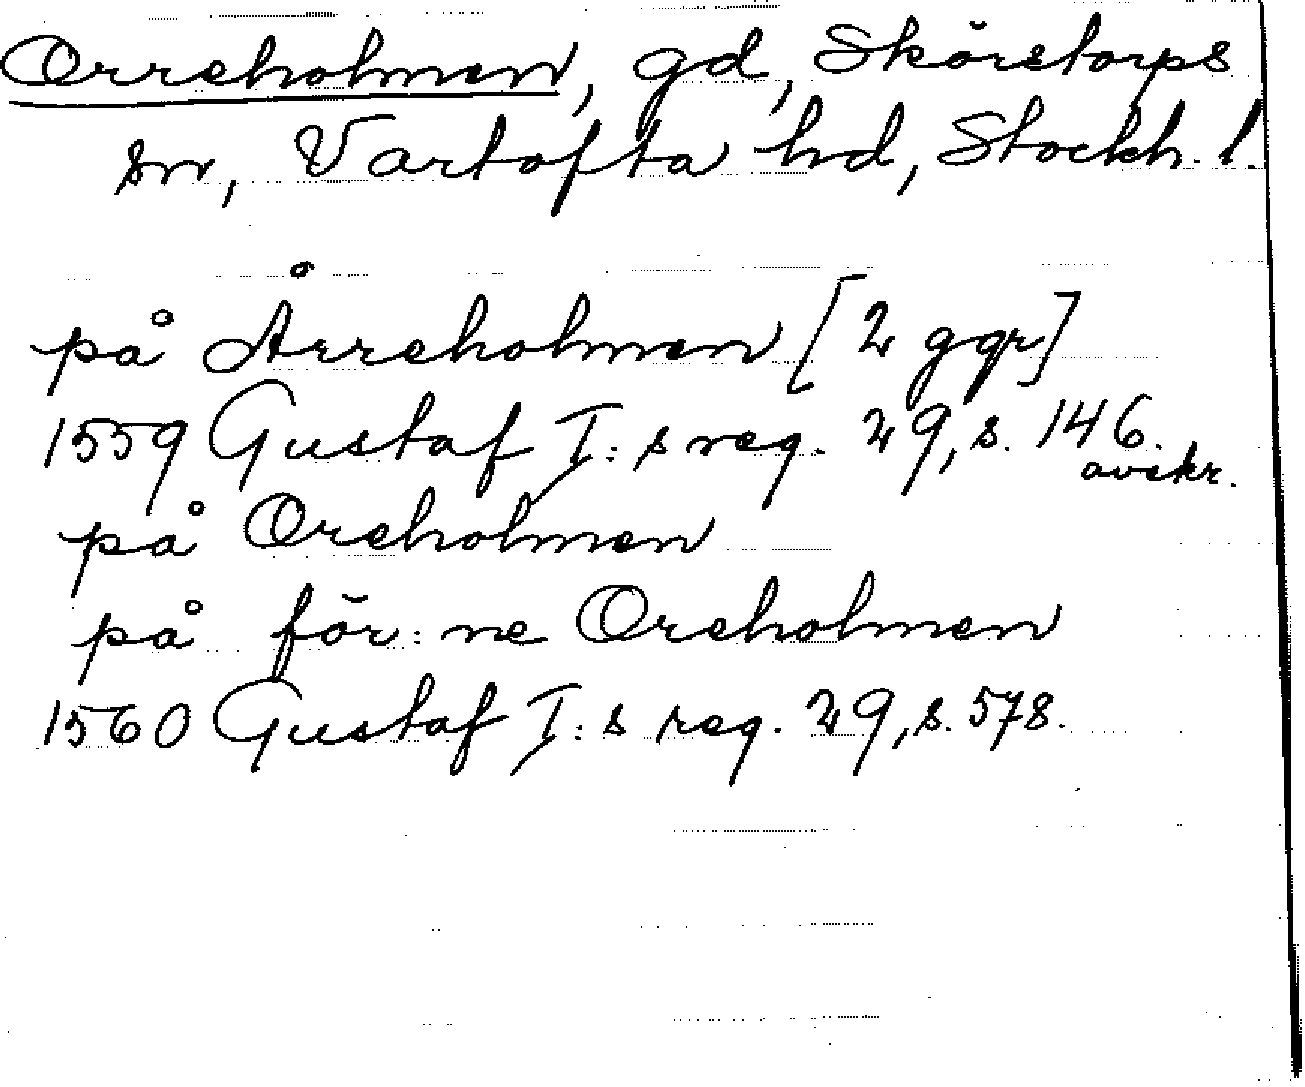 Orreholmen, gd, Skörstorps
sn, Vartofta hd, Stockh. l.
på Årreholmen [2 ggr]
1559 Gustaf I:s reg. 29, s. 146.
avskr.
på Oreholmen
på för:ne Oreholmen
1560 Gustaf I:s reg. 29, s. 578.